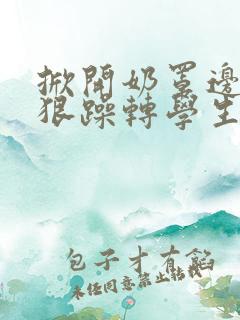 掀開奶罩邊
狠躁轉學生
包子才有餡
未經同意禁止轉載